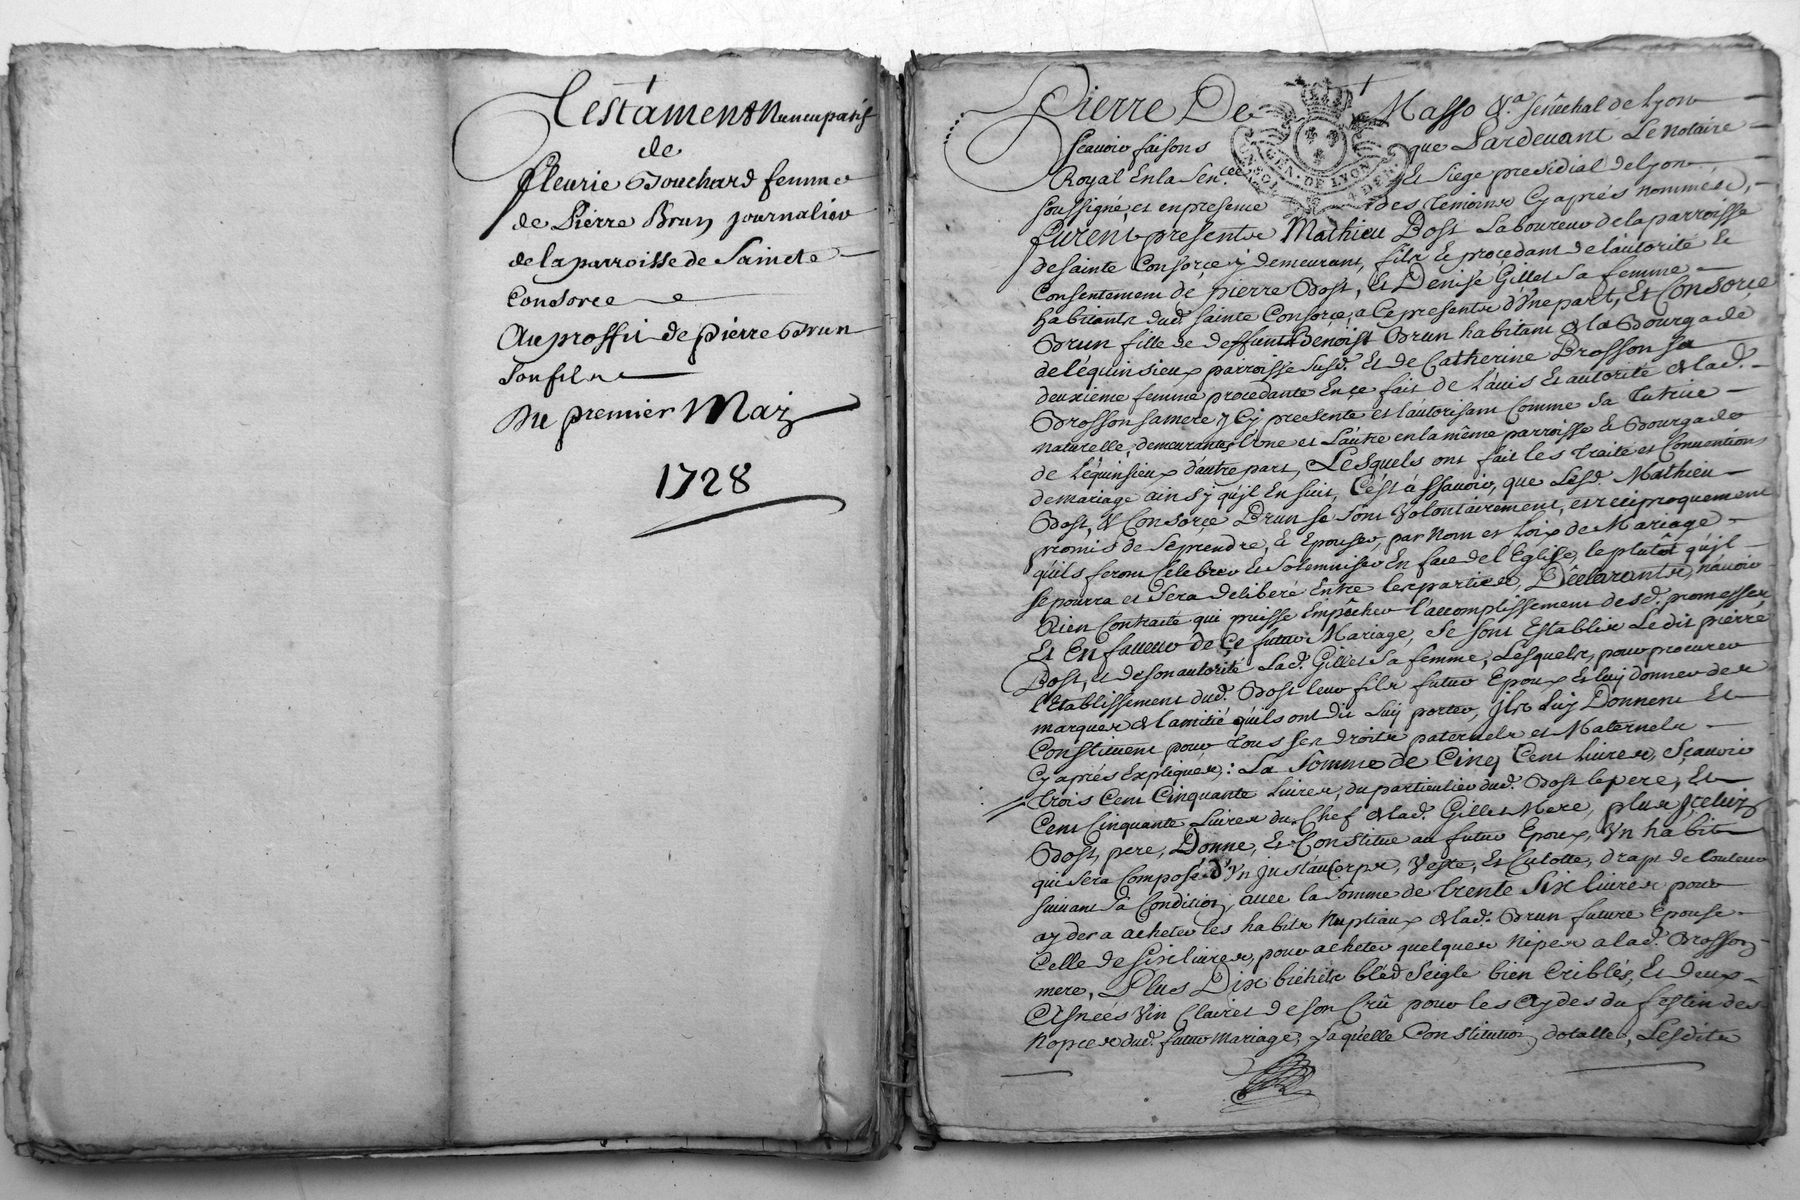 Testament Nuncupatif
de
fleurie Bouchard femme
de Pierre Brun journalier
de la parroisse de Saincte
Consorce
Au proffit de pierre Brun
Son fils
Du premier Maij
1728
Pierre De Masso &.a Senêchal de Lyon
Scavoir faisons que Pardevant Le Notaire
Royal En la Sen.cée Et Siege presidial de Lyon
GEN. DE LYON
soussigné, et en presence des temoins Cy aprés nommés,
furent presents Mathieu Bost Laboureur de la parroisse
de Sainte Consorçe y demeurant, fils & proçedant de l'autorité &
Consentement de pierre Bost, & Denise Gillet Sa femme
habitants dud. Sainte Consorçe, a Ce presents d'Une part, Et Consorçe
Brun fille de deffunt Benoist Brun habitant & la Bourgade
de Léquinsieux parroisse Susd. Et de Catherine Brosson Sa
deuxieme femme proçedante En çe fait de l'auis Et autorité & lad.
Brosson sa mere y Cy presente et l'autorisant Comme Sa Tutrice
Naturelle, demeurantes L'une et L'autre en la même parroisse & Bourgade
de Léquinsieux d'autre part, Lesquels ont fait les Traité et Conuentions
de mariage ainsy qu'jl En suit, C'ést á SSauoir, que Lesd. Mathieu
Bost, & Consorçe Brun se sont Volontairement, et reciproquement
promis de Se prendre, & Epouser, par Nom et Loix de Mariage
qu'ils feront Sélebrer & Solemniser En face de l'Eglise, le plutôt qu'jl
se pourra et Sera deliberé Entre les parties, Déclarants, n'auoir
Rien Contracté qui puisse Empêcher l'accomplissement desd. promesses,
Et En faueur de Çe futur Mariage, Se sont Establis Ledit pierre
Bost, et de son autorité Lad. Gillet Sa femme, Lesquels, pour procurer
l'Etablissement dud. Bost leur fils futur Epoux Et luy donner des
marques & l'amitié qu'ils ont dit Luy porter, Jls Luy Donnent Et
Constituent pour Tous Ses droits paternels et Maternels
Cy aprés Expliqués: La Somme de Cinq Cent Liures, Sçauoir
trois Cent Cinquante Liures, du particulier dud. Bost le pere, Et
Cent Cinquante Liures du Chef & lad. Gillet Mere, plus Jceluy
Bost, pere, Donne, Et Constitue au futur Epoux, Vn habit
qui Sera Composé d'Vn Justaucorps, Veste, Et Culotte, drapt de Couleur
suiuant Sa Condition, auec la Somme de trente Six liures pour
ayder a acheter les habits Nuptiaux & lad. Brun future Epouse
Celle de Six liures, pour acheter quelques Nipes a lad. Brosson
mere, Plus Dix bichets bléd Seigle bien Criblés, Et deux
Asnées Vin Clairet de son Crû pour les Aydes du festin des
Nopces dud. futur Mariage, Laquelle Constitution dotalle, Lesdits